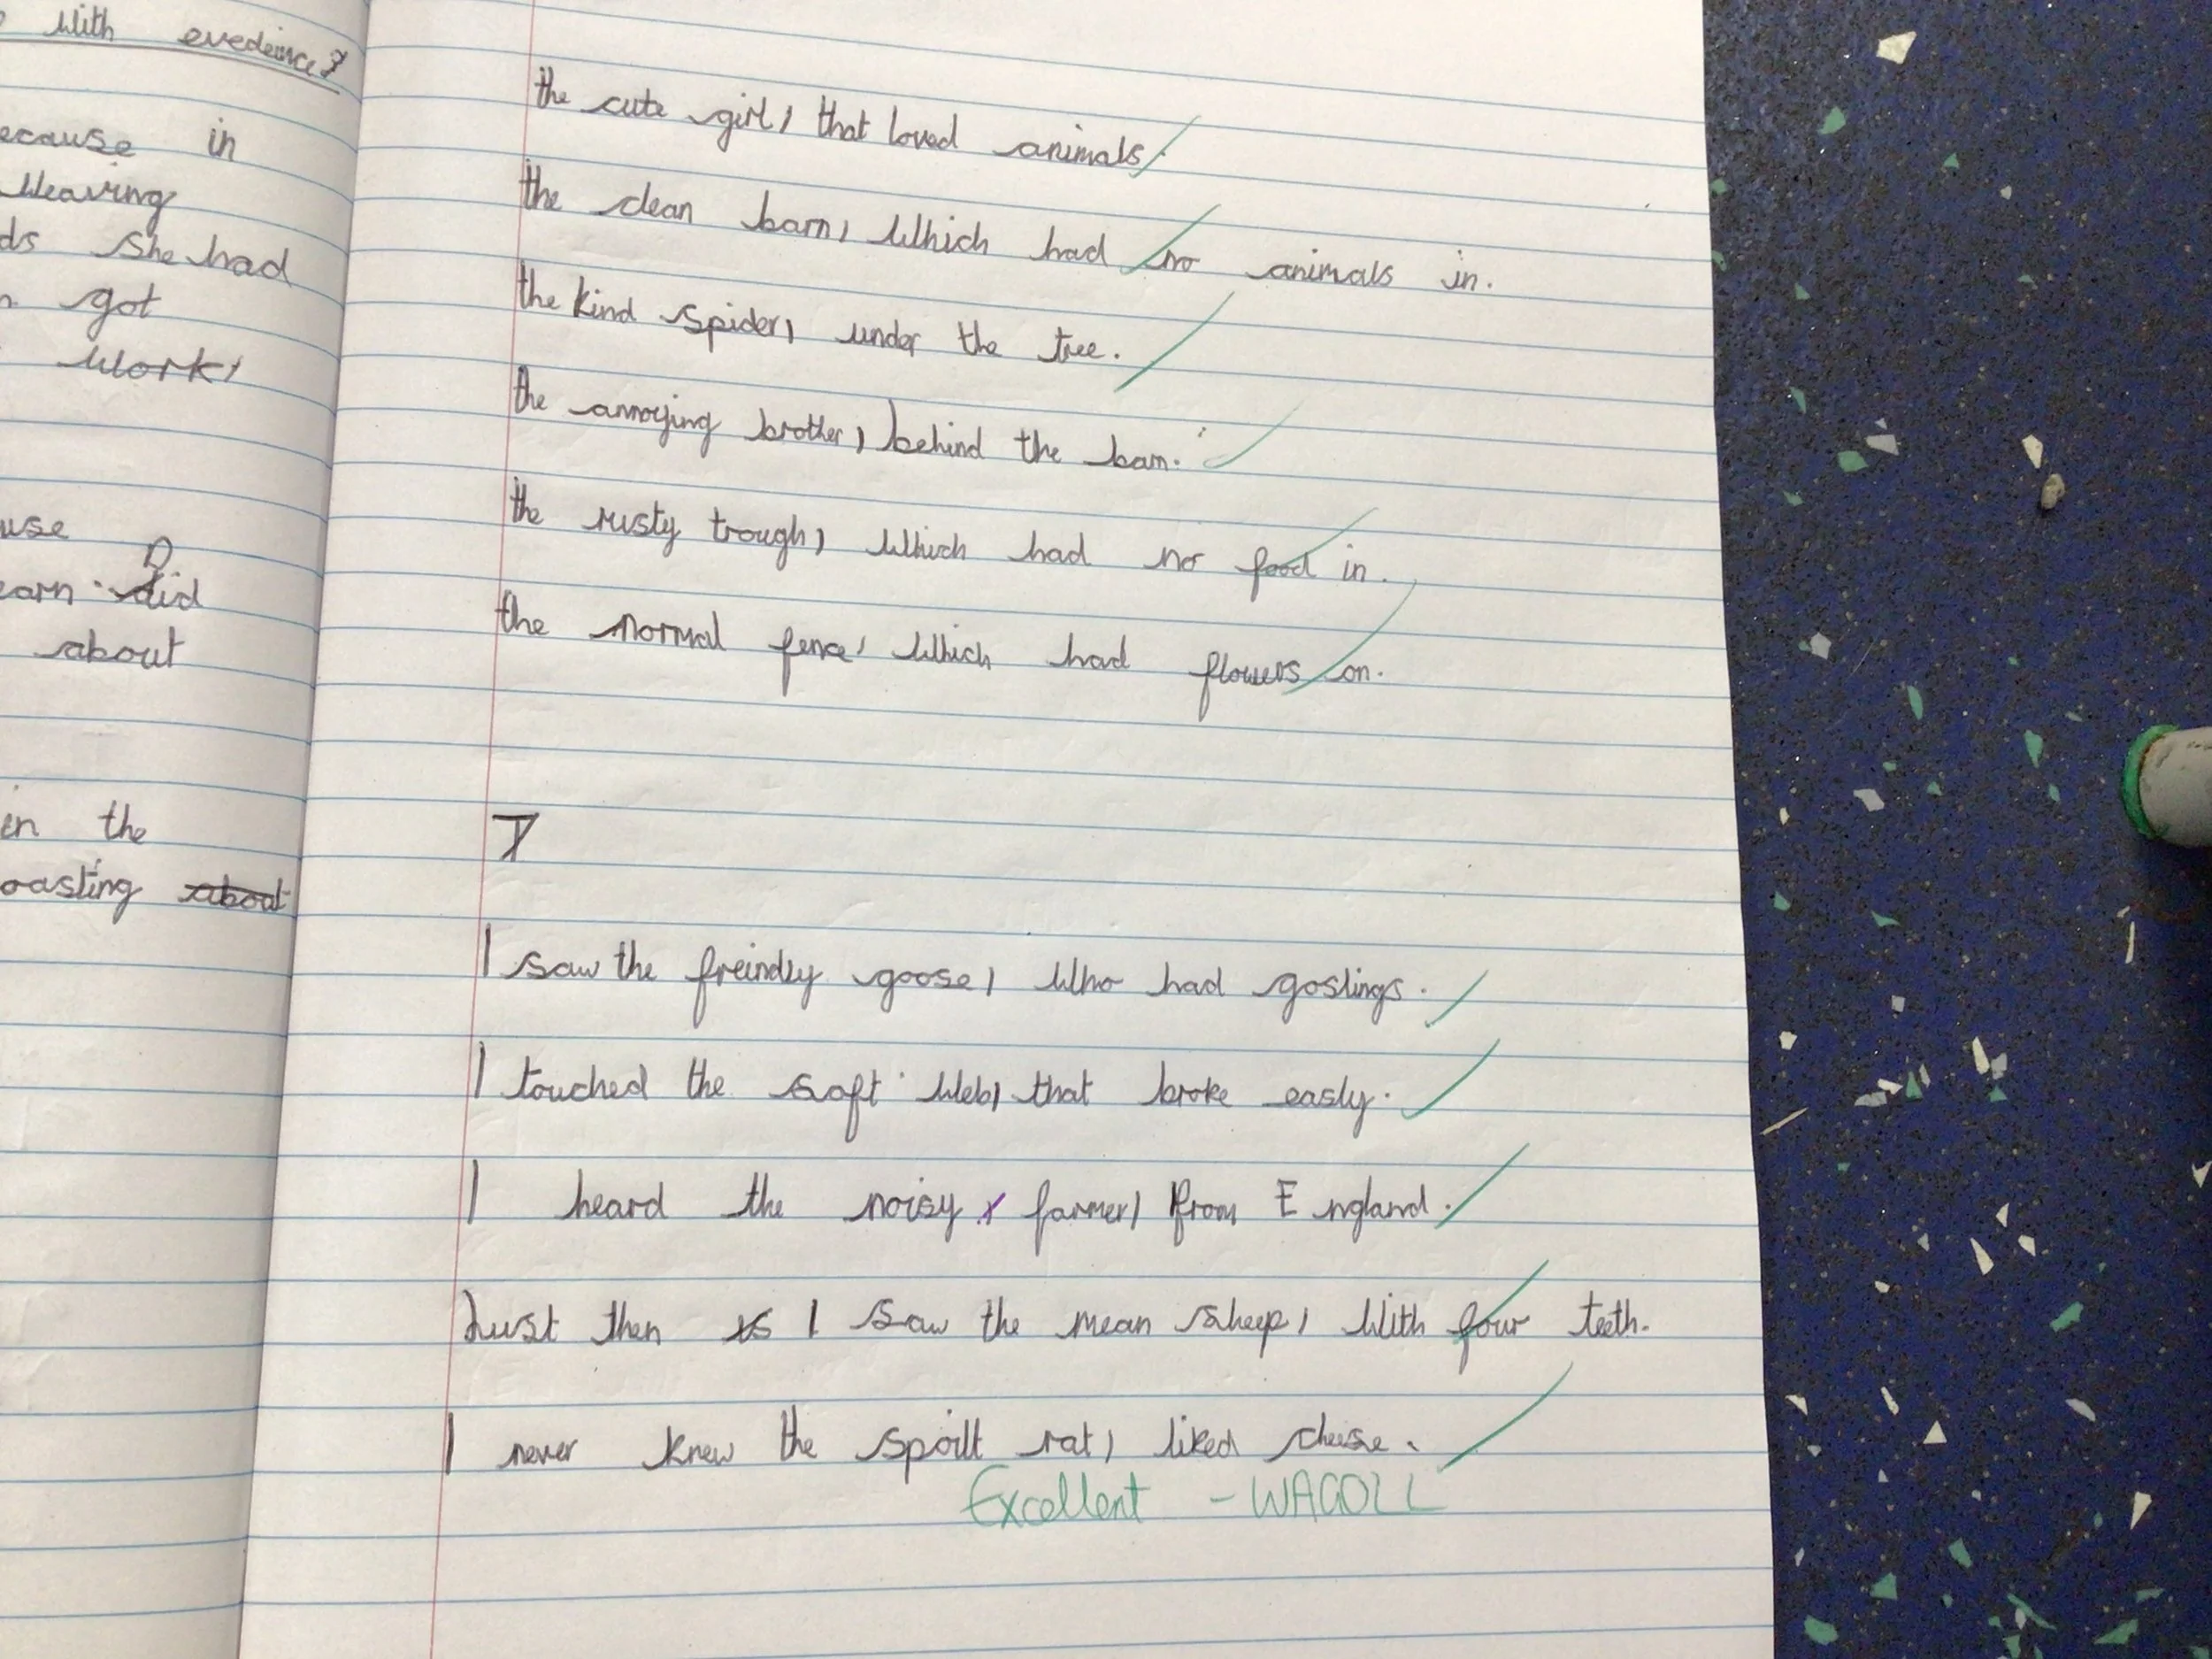 With evedeince?
ecause in
Weaving
ds She had
got
Work,
use
D
earn. did
about
en the
oasting about
the cute girl, that loved animals.
the clean barn, Which had no animals in.
the kind spider, under the tree.
the annoying brother, behind the barn.
the rusty trough, Which had no food in.
the normal fence, Which had flowers on.
I saw the freindly goose, Who had goslings.
I touched the soft Web, that broke easly.
I heard the noisy farmer, from England.
Just then I saw the mean sheep, With four teeth.
I never knew the spoilt rat, liked cheese.
Excellent - WAGOLL